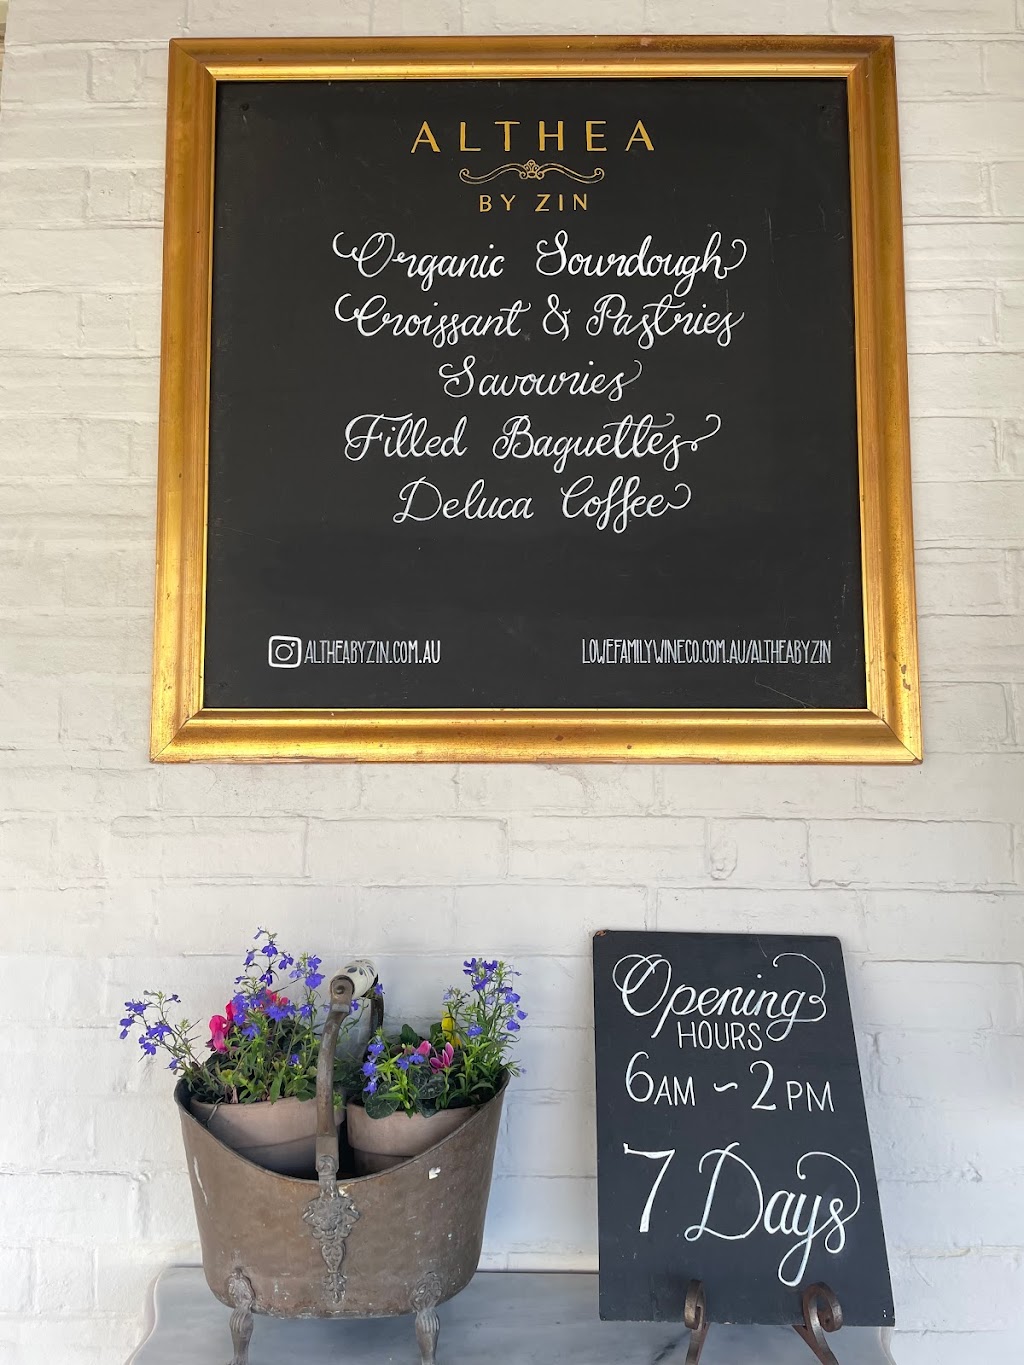 ALTHEA
BY ZIN
Organic Sourdough
Croissant & Pastries
Savouries
Filled Baguettes
Deluca Coffee
ALTHEABYZIN.COM.AU
LOWEFAMILYWINECO.COM.AU/ALTHEABYZIN
Opening
HOURS
6AM ~ 2PM
7 Days